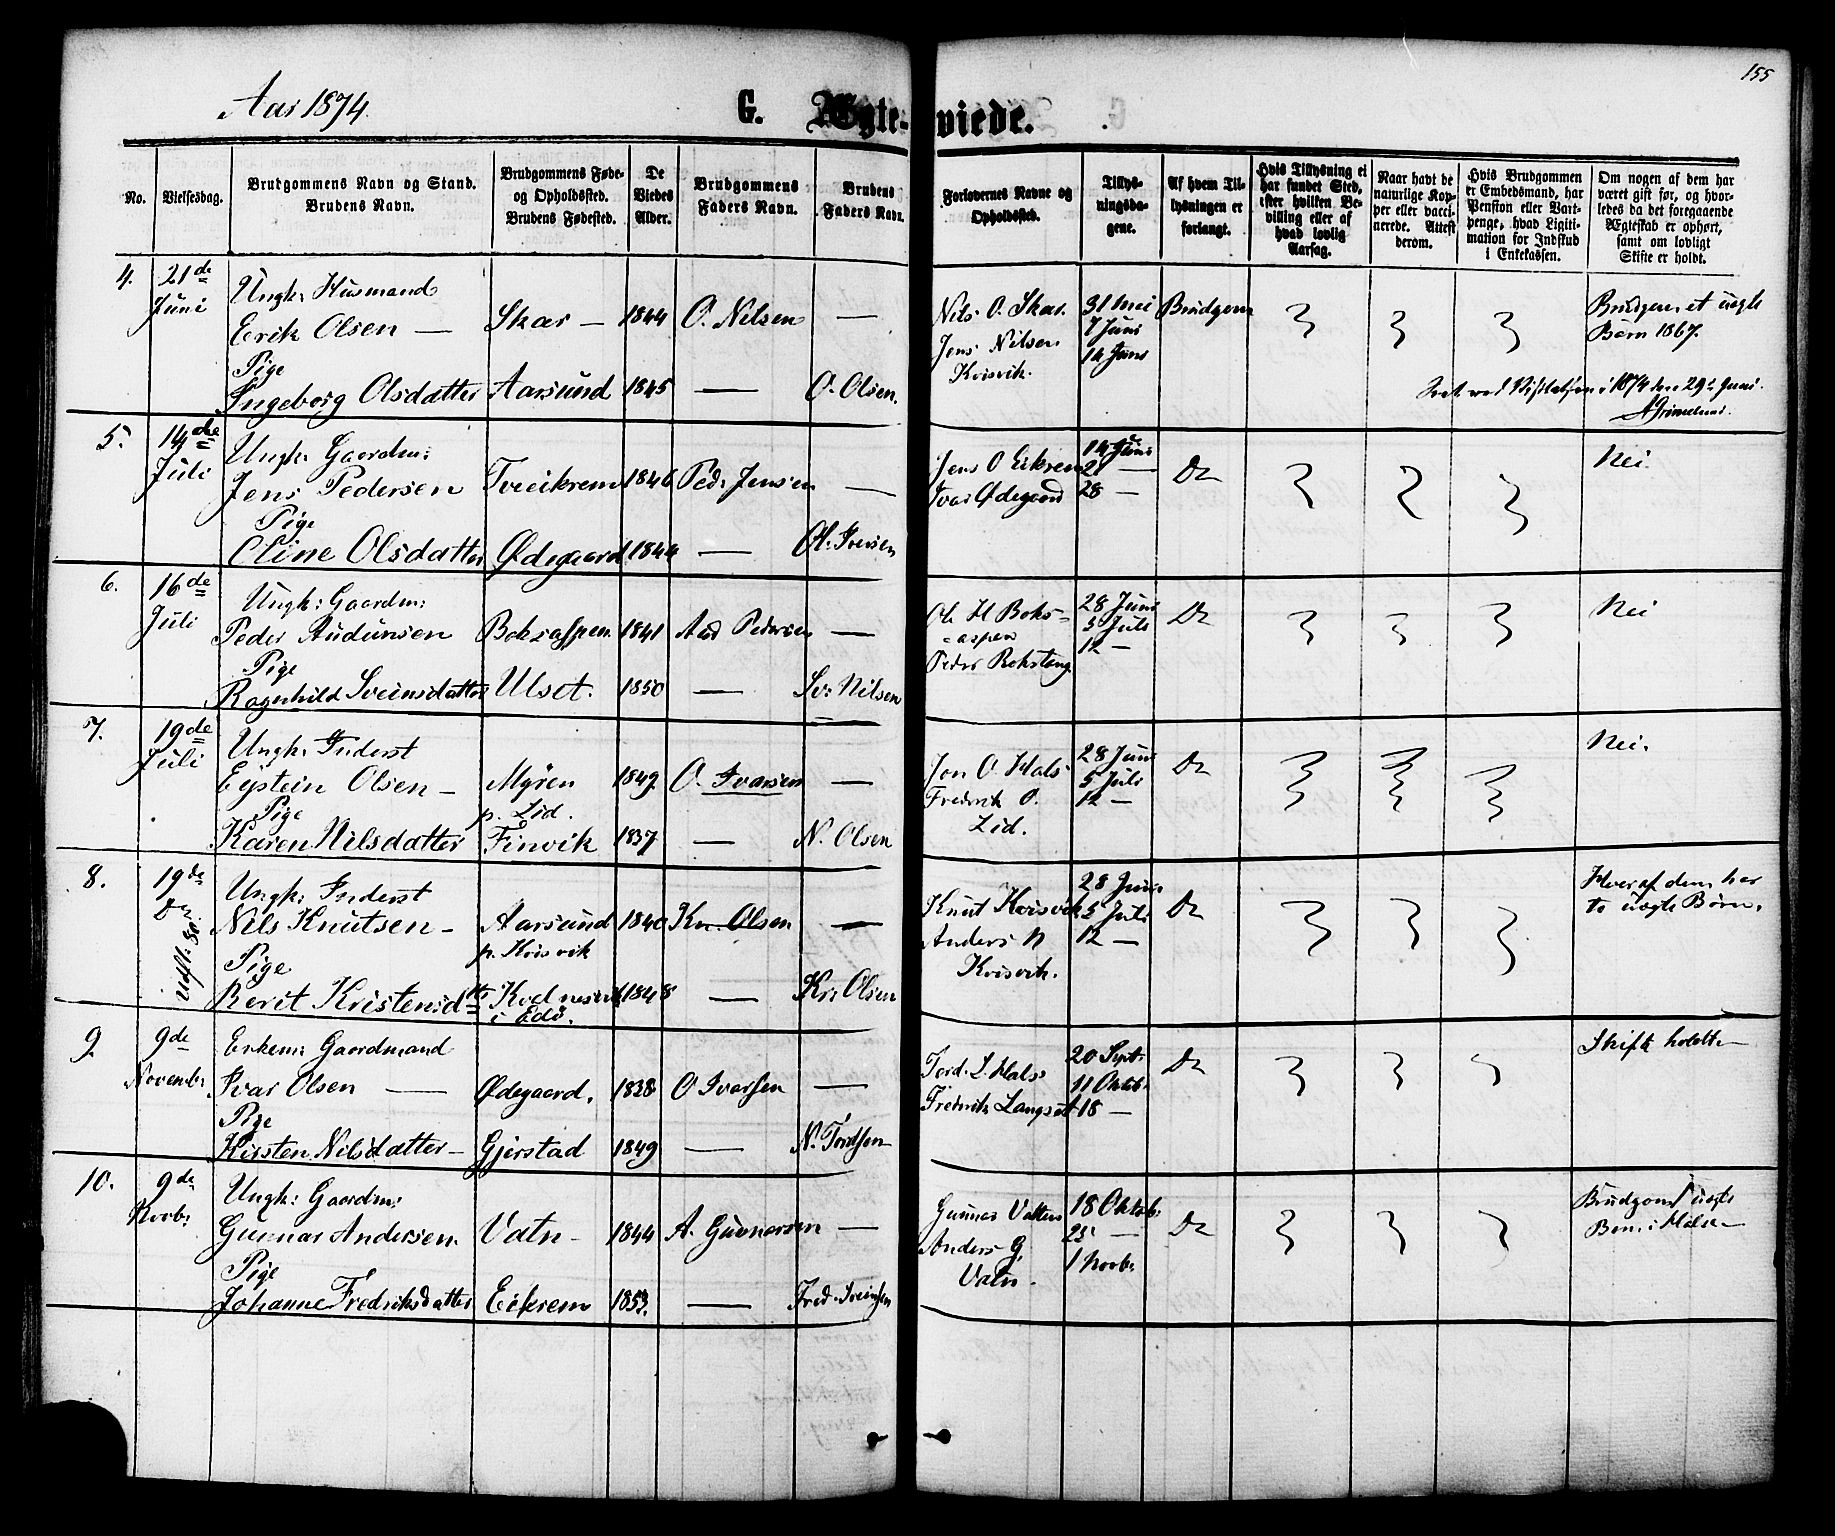 155
Aar 1874.
G. Ægte-viede.
No.
Vielsesdag.
Brudgommens Navn og Stand.
Brudens Navn.
Brudgommens Føde-
og Opholdssted.
Brudens Fødested.
De
Viedes
Alder.
Brudgommens
Faders Navn.
Brudens
Faders Navn.
Forlovernes Navne og
Opholdssted.
Tillys-
ningsda-
gene.
Af hvem Til-
lysningen er
forlangt.
Hvis Tillysning ei
har fundet Sted,
efter hvilken Be-
villing eller af
hvad lovlig
Aarsag.
Naar havt de
naturlige Kop-
per eller vacci-
nerede. Attest
derom.
Hvis Brudgommen
er Embedsmand, har
Pension eller Vart-
penge, hvad Ligiti-
mation for Indskud
i Enkekassen.
Om nogen af dem har
været gift før, og hvor-
ledes da det foregaaende
Ægteskab er ophørt,
samt om lovligt
Skifte er holdt.
4.
21de
Juni
Ungk: Husmand
Erik Olsen —
Pige
Ingeborg Olsdatter
Skar —
Aarsund
1844
1845
O. Nilsen
—
—
O. Olsen.
Nils O. Skar.
Jens Nilsen
Kvisvik.
31 Mei
7 Juni
14 Juni
Brudgom
Brudgom et uægte
Barn 1867.
Seet ved Visitatsen i 1874 den 29de Juni.
AGrimelund.
5.
14de
Juli
Ungk: Gaardm:
Jens Pedersen
Pige
Oline Olsdatter
Tveikrem
Ødegaard
1846
1844
Ped. Jensen
—
—
Ol. Iversen
Jens O Eikrem
Ivar Ødegaard
14 Juni
21 —
28 —
Do
Nei.
6.
16de
Juli
Ungk: Gaardm:
Peder Audunsen
Pige
Ragnhild Sveinsdatter
Boksaspen.
Ulset.
1841
1850
Aud Pedersen
—
—
Sv: Nilsen
Ole H Boks-
-aspen
Peder Bokstang
28 Juni
5 Juli
12 —
Do
Nei
7.
19de
Juli
Ungk: Inderst
Eystein Olsen —
Pige
Karen Nilsdatter
Myren
p. Lid.
Finvik
1849.
1837
O. Ivarsen
—
—
N. Olsen
Jon O. Hals
Fredrik O.
Lid.
28 Juni
5 Juli
12 —
Do
Nei.
8.
19de
Do
Ungk: Inderst
Nils Knutsen —
Pige
Berit Kristensdtr
Aarsund
p. Kvisvik
i Edø.
1840
1848
Kn. Olsen
—
—
Kr: Olsen
Knut Kvisvik
Anders N
Kvisvik.
28 Juni
5 Juli
12 —
Do
Hver af dem har
to uægte Børn.
9.
9de
Novembr
Enkem: Gaardmand
Ivar Olsen —
Pige
Kirsten Nilsdatter —
Ødegaard.
Gjerstad
1838
1849
O Ivarsen
—
—
N. Tordsen
Tord. L. Hals
Fredrik Langset
20 Sept.
11 Oktob.
18 —
Do
Skifte holdt —
10.
9de
Novbr
Ungk: Gaardm:
Gunnar Andersen.
Pige
Johanne Fredriksdatter
Vatn —
Eikrem
1844
1853.
A. Gunnarsen
—
—
Fred. Sveinsen
Gunnar Vatten
Anders G.
Vatn.
18 Oktob:
25 —
1 Novbr
Do
Brudgom 1 uægte
Barn i Halse —